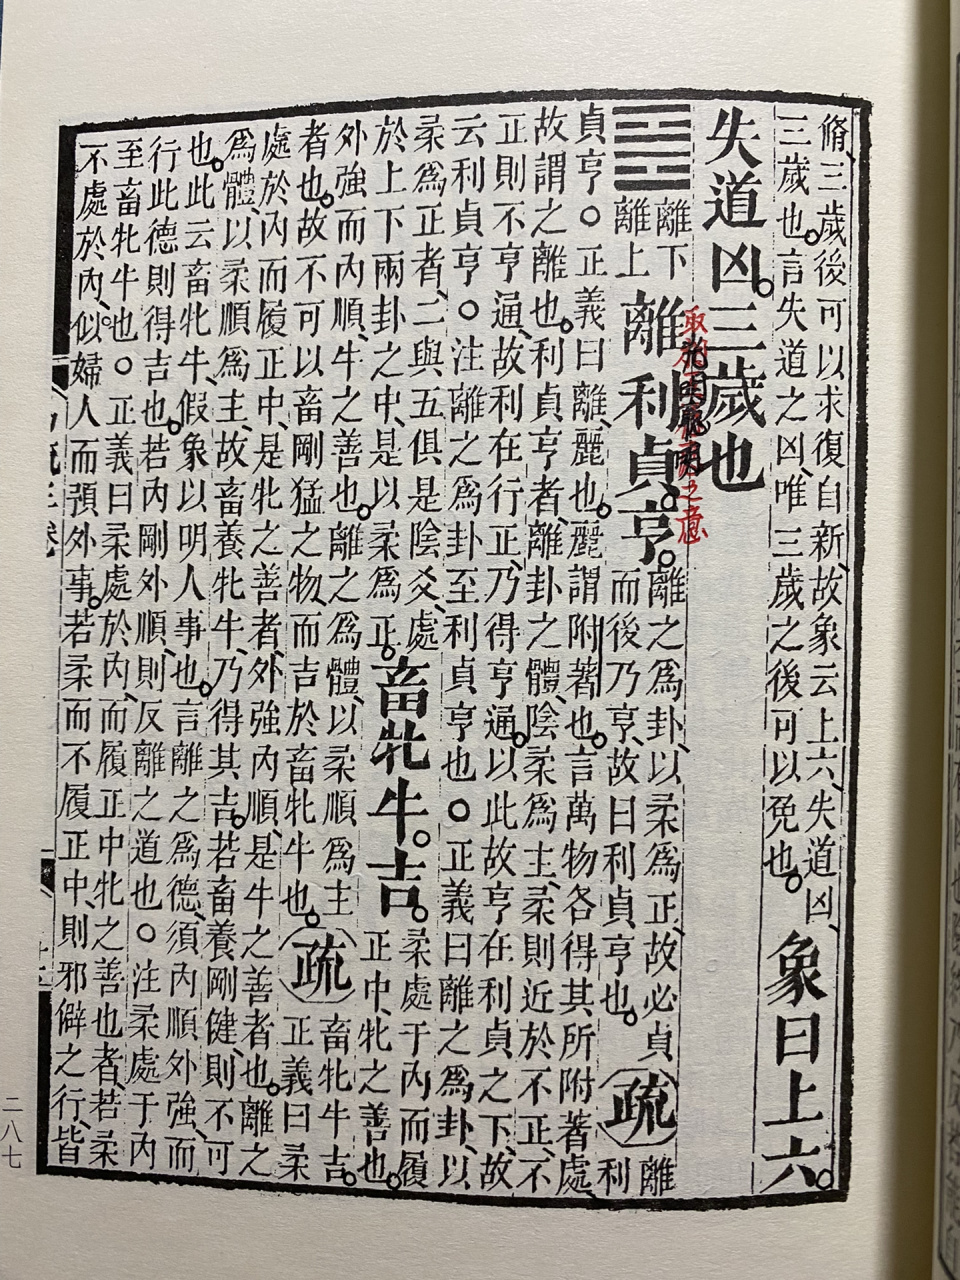 脩三歲後可以求復自新故象云上六失道凶
三歲也言失道之凶唯三歲之後可以免也
象曰上六
失道凶三歲也
離下
離上
離利貞亨
離之爲卦以柔爲正故必貞
而後乃亨故曰利貞亨也
疏
離
利
貞亨○正義曰離麗也麗謂附著也言萬物各得其所附著處
故謂之離也利貞亨者離卦之體陰柔爲主柔則近於不正不
正則不亨通故利在行正乃得亨通以此故亨在利貞之下故
云利貞亨○注離之爲卦至利貞亨也○正義曰離之爲卦以
柔爲正者二與五俱是陰爻處
於上下兩卦之中是以柔爲正
畜牝牛吉
柔處于內而履
正中牝之善也
外強而內順牛之善也離之爲體以柔順爲主
者也故不可以畜剛猛之物而吉於畜牝牛也
疏
畜牝牛吉
正義曰柔
處於內而履正中是牝之善者外強內順是牛之善者也離之
爲體以柔順爲主故畜養牝牛乃得其吉若畜養剛健則不可
也此云畜牝牛假象以明人事也言離之爲德須內順外強而
行此德則得吉也若內剛外順則反離之道也○注柔處于內
至畜牝牛也○正義曰柔處於內而履正中牝之善也者若柔
不處於內似婦人而預外事若柔而不履正中則邪僻之行皆
二八七